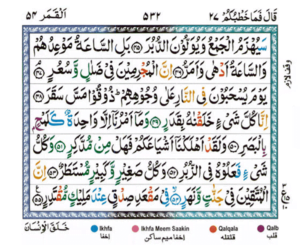 القمر ٥٤
٥٣٢
قال فما خطبكم ٢٧
سَيُهْزَمُ الْجَمْعُ وَيُوَلُّوْنَ الدُّبُرَ ﴿٤٥﴾ بَلِ السَّاعَةُ مَوْعِدُهُمْ
وَالسَّاعَةُ اَدْهٰى وَاَمَرُّ ﴿٤٦﴾ اِنَّ الْمُجْرِمِيْنَ فِيْ ضَلٰلٍ وَّسُعُرٍ ﴿٤٧﴾
يَوْمَ يُسْحَبُوْنَ فِي النَّارِ عَلٰى وُجُوْهِهِمْ ذُوْقُوْا مَسَّ سَقَرَ ﴿٤٨﴾
اِنَّا كُلَّ شَيْءٍ خَلَقْنٰهُ بِقَدَرٍ ﴿٤٩﴾ وَمَآ اَمْرُنَآ اِلَّا وَاحِدَةٌ كَلَمْحٍ
بِالْبَصَرِ ﴿٥٠﴾ وَلَقَدْ اَهْلَكْنَآ اَشْيَاعَكُمْ فَهَلْ مِنْ مُّدَّكِرٍ ﴿٥١﴾ وَكُلُّ
شَيْءٍ فَعَلُوْهُ فِي الزُّبُرِ ﴿٥٢﴾ وَكُلُّ صَغِيْرٍ وَّكَبِيْرٍ مُّسْتَطَرٌ ﴿٥٣﴾ اِنَّ
الْمُتَّقِيْنَ فِيْ جَنّٰتٍ وَّنَهَرٍ ﴿٥٤﴾ فِيْ مَقْعَدِ صِدْقٍ عِنْدَ مَلِيْكٍ مُّقْتَدِرٍ ﴿٥٥﴾
وقف لازم
خلق الانسان
Ikhfa
اخفا
Ikhfa Meem Saakin
اخفا میم ساكن
Qalqala
قلقله
Qalb
قلب